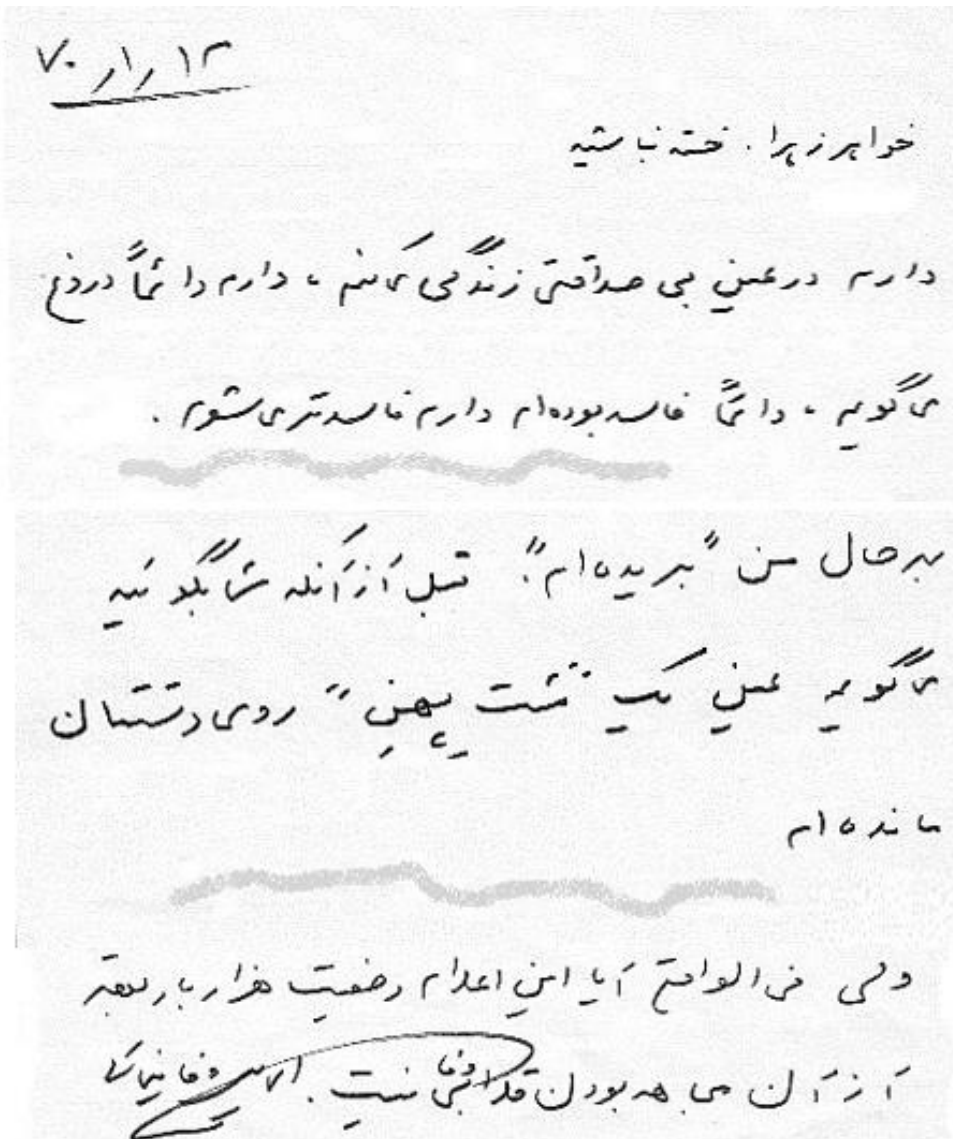 ۷۰/۱/۱۲
خواهر زهرا. خسته نباشید
دارم در عین بی صداقتی زندگی می کنم ، دارم دائماً دروغ
می گویم ، دائماً فاسد بوده ام دارم فاسدتر می شوم .
بهرحال من "بریده ام". قبل از آنکه شما بگوئید
می گویم عین یک "مشت پهن" روی دستتان
مانده ام
ولی فی الواقع آیا این اعلام وضعیت هزار بار بهتر
از آن مجاهد بودن قلابی نیست.